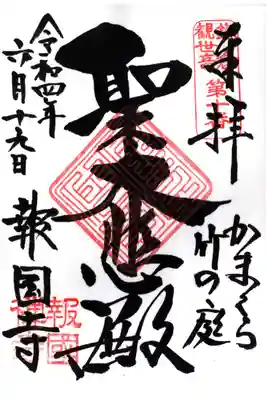 来拝
観世音
第十
かまくら
竹の庭
聖大悲殿
令和四年
六月十九日
報国寺
報國